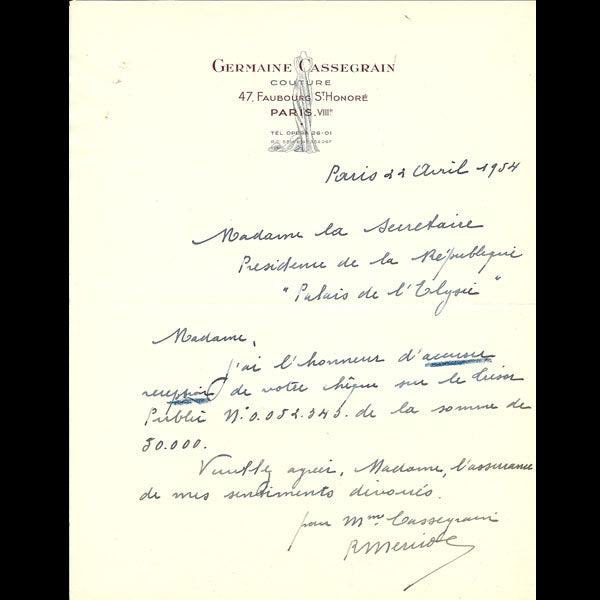 GERMAINE CASSEGRAIN
COUTURE
47, FAUBOURG ST HONORÉ
PARIS. VIIIe
TÉL. OPÉRA 26-01
Paris 22 Avril 1954
Madame la Secretaire
Presidence de la République
"Palais de l'Elysée"
Madame,
J'ai l'honneur d'accuser
reception de votre chèque sur le Trésor
Public N° 0.052.343. de la somme de
50.000.
Veuillez agréer, Madame, l'assurance
de mes sentiments dévoués.
pour Mme Cassegrain